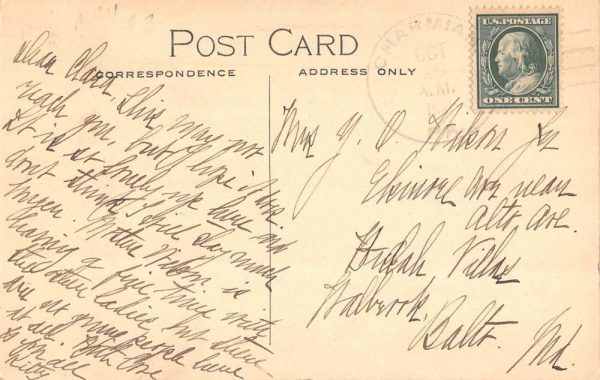 POST CARD
CORRESPONDENCE
ADDRESS ONLY
CHARMIAN
OCT
A.M.
U.S. POSTAGE
ONE CENT
Dear Clara This may not
reach you, but I hope it does.
It is so lonely up here and
dont think I will stay much
longer. Mother Wilson is
having a fine time with
the other ladies, but there
are no young people here
at all. With love
to you all
Mrs J. O. Wilson Jr
Elsinore Ave near
Alto Ave.
Villa
Walbrook,
Balto. Md.